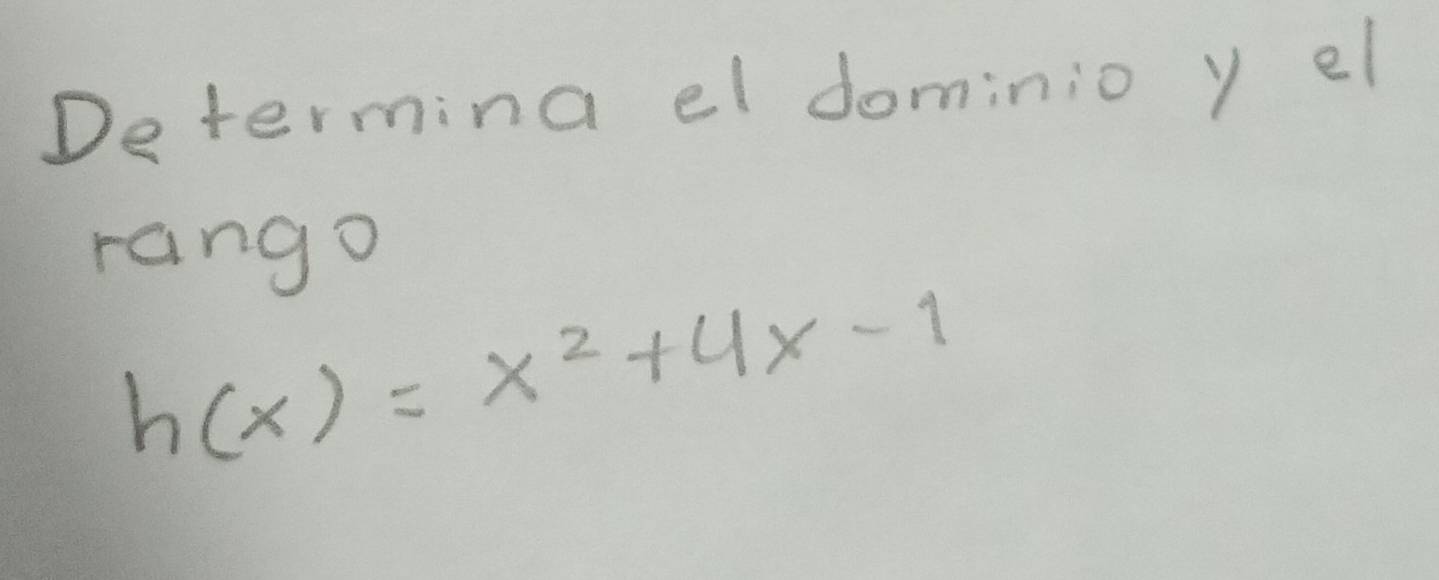 Determina el dominio y el
rango
h(x) = x² + 4x - 1